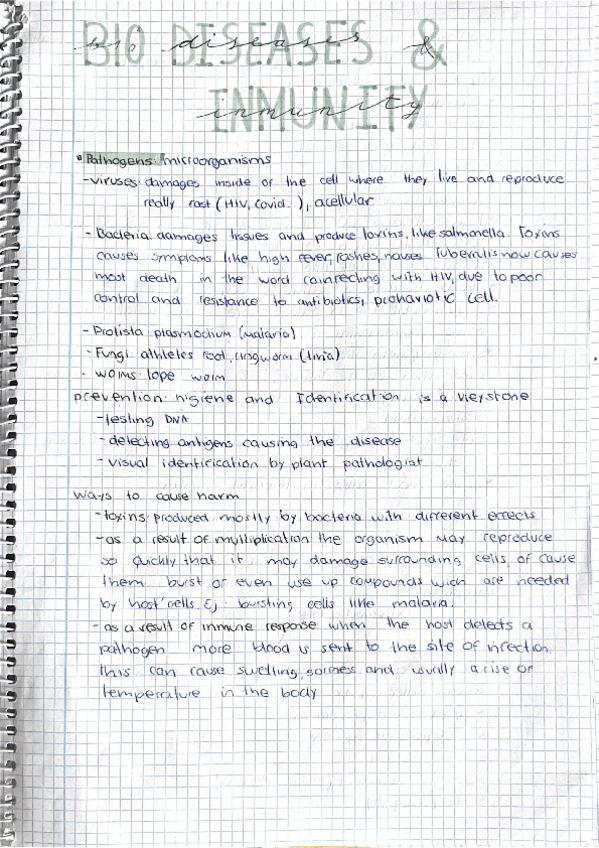 BIO DISEASES &
bio diseases &
INMUNITY
inmunity
Pathogens: microorganisms
-viruses: damages inside of the cell where they live and reproduce
really fast (HIV, Covid..), acellular
- Bacteria: damages tissues and produce toxins, like salmonella. Toxins
causes symptoms like high fever, rashes, nauses Tuberculis now causes
most death in the word coinfecting with HIV, due to poor
control and resistance to antibiotics, prokariotic cell.
- Protista plasmodium (malaria)
- Fungi: athletes foot, ringworm (tinia)
- worms: tape worm
prevention: higiene and Identification is a keystone
-testing DNA
-detecting antigens causing the disease
-visual identification by plant pathologist
ways to cause harm
-toxins: produced mostly by bacteria with different effects
-as a result of multiplication the organism may reproduce
so quickly that it may damage surrounding cells of cause
them burst or even use up compounds wich are needed
by host cells. Ej: bursting cells like malaria.
- as a result of inmune response when the host detects a
pathogen more blood is sent to the site of infection
this can cause swelling, sorness and usually a rise of
temperature in the body